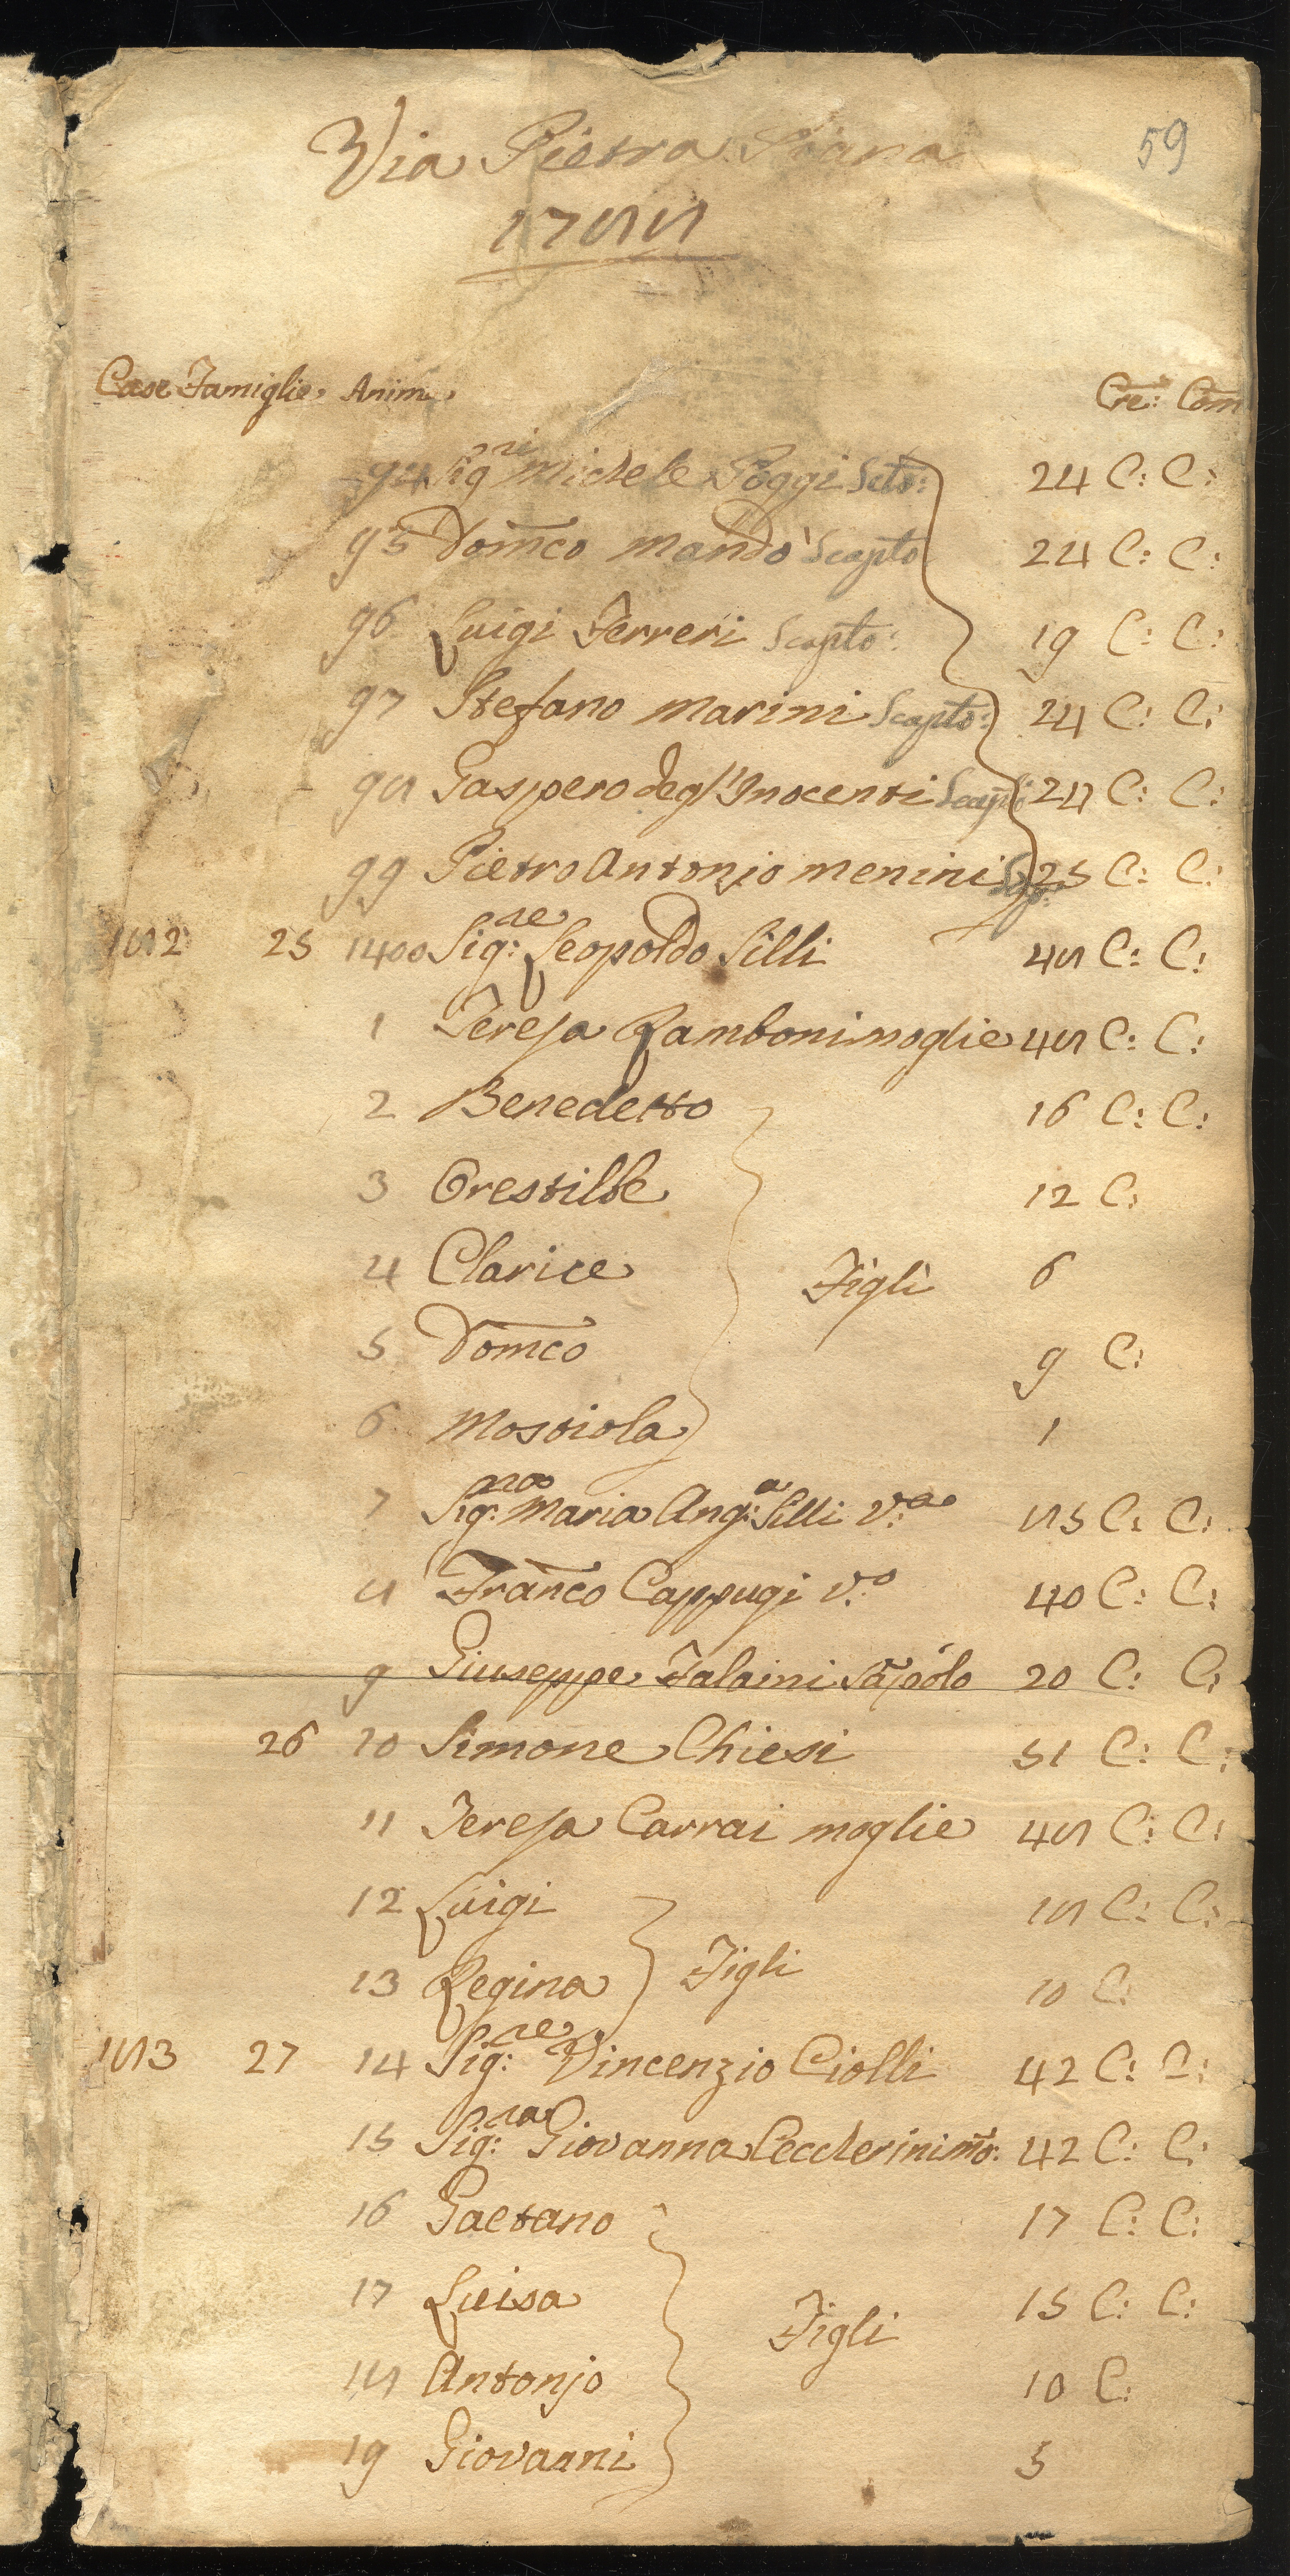 59
Via Pietra Piana
1788
Case Famiglie Anim. Cre: Com
94 Sigri Michele Poggi Scto: 24 C: C:
95 Domco Mandò Scapto 24 C: C:
96 Luigi Ferreri Scapto: 19 C: C:
97 Stefano Marini Scapto: 24 C: C:
98 Gaspero degl'Inocenti 24 C: C:
99 Pietro Antonjo Menini 25 C: C:
182 25 1400 Sig:re Leopoldo Silli 48 C: C:
1 Teresa Ramboni moglie 48 C: C:
2 Benedetto 16 C: C:
3 Orestille 12 C:
4 Clarice Figli 6
5 Domco 9 C:
6 Mostiola 1
7 Sig:ra Maria Ang:a Silli V:a 85 C: C:
8 Franco Cappugi V:o 40 C: C:
9 Giuseppe Falaini 20 C: C:
26 10 Simone Chiesi 51 C: C:
11 Teresa Carrai moglie 48 C: C:
12 Luigi 18 C: C:
13 Regina Figli 10 C
183 27 14 Sig:re Vincenzio Ciolli 42 C: C:
15 Sig:ra Giovanna Ceccherini mo: 42 C: C:
16 Gaetano 17 C: C:
17 Luisa Figli 15 C: C:
18 Antonjo 10 C:
19 Giovanni 5